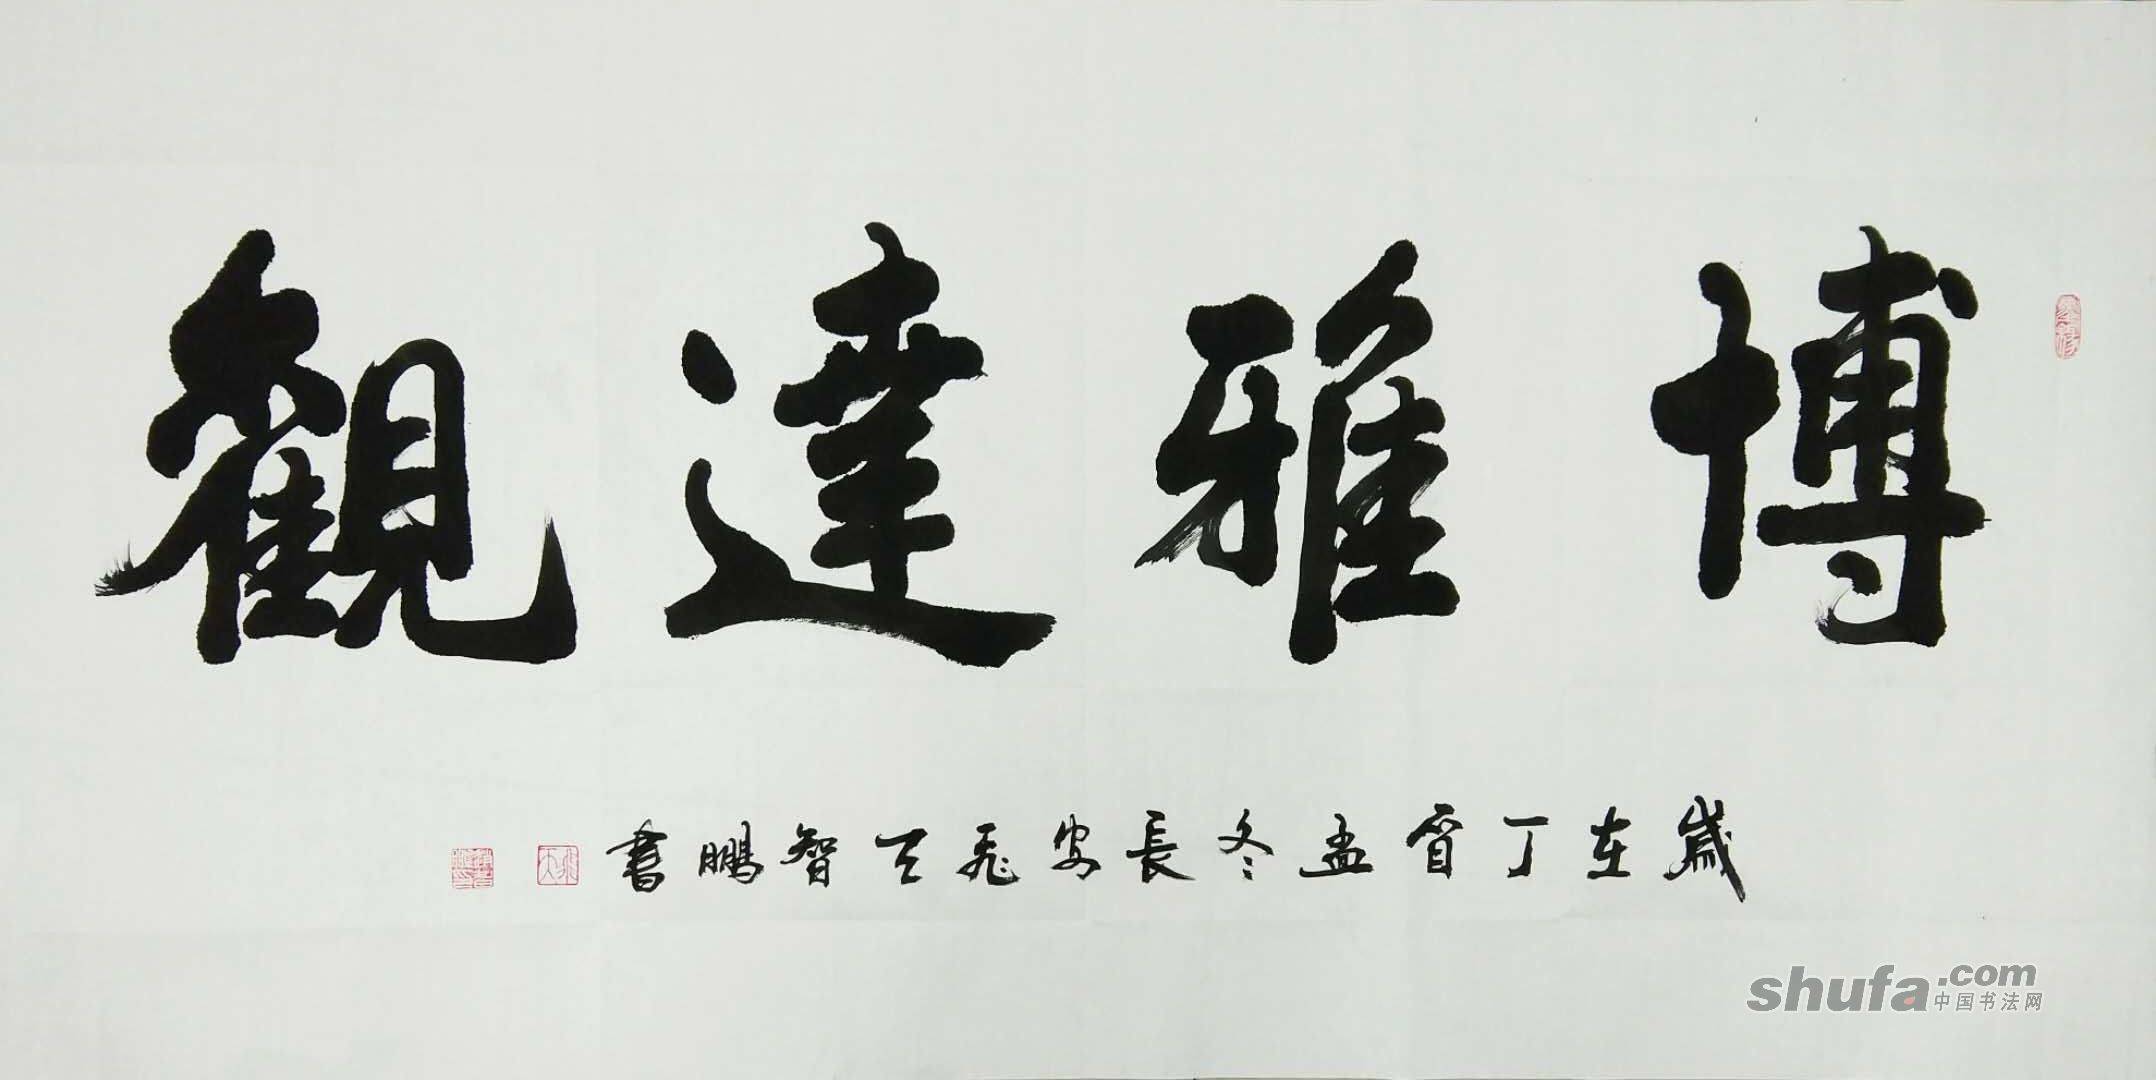 博雅達觀
歲在丁酉孟冬長安飛天智鵬書
shufa.com
中国书法网